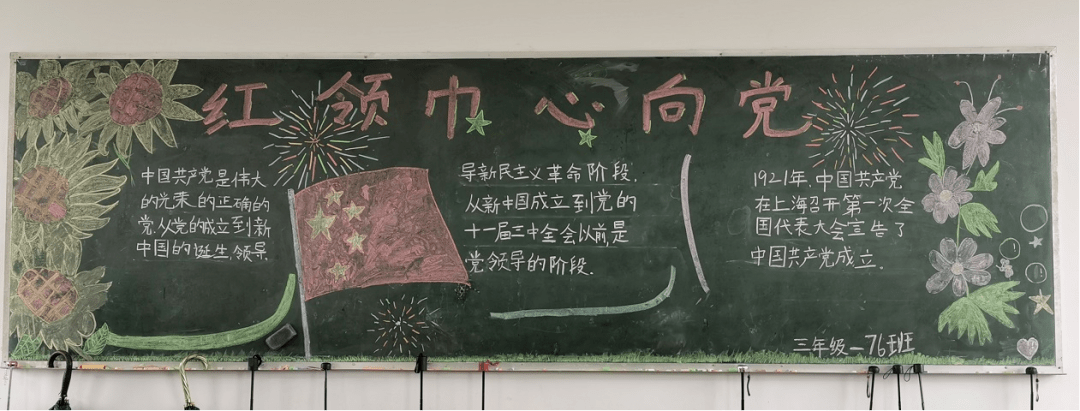 红领巾心向党
中国共产党是伟大
的光荣的正确的
党,从党的成立到新
中国的诞生,领导
导新民主义革命阶段.
从新中国成立到党的
十一届三中全会以前是
党领导的阶段.
1921年,中国共产党
在上海召开第一次全
国代表大会宣告了
中国共产党成立.
三年级-76班